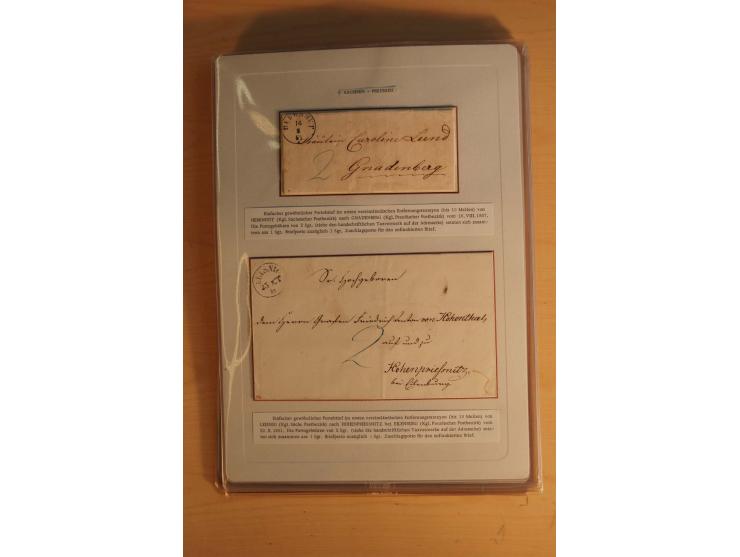 SACHSEN - PREUSSEN
Fräulein Caroline Lund
2
Gnadenberg
Einfacher gewöhnlicher Portobrief im ersten vereinsländischen Entfernungsrayon (bis 10 Meilen) von
HERRNHUT (Kgl. Sächsischer Postbezirk) nach GNADENBERG (Kgl. Preußischer Postbezirk) vom 16. VIII. 1851.
Die Portogebühren von 2 Sgr. (siehe den handschriftlichen Taxvermerk auf der Adreßseite) setzten sich zusam-
men aus 1 Sgr. Briefporto zuzüglich 1 Sgr. Zuschlagporto für den unfrankierten Brief.
Sr. Hochgeboren
dem Herrn Grafen Friedrich Anton von Hohenthal,
2
auf und zu
Hohenpriefsnitz,
bei Eilenburg
Einfacher gewöhnlicher Portobrief im ersten vereinsländischen Entfernungsrayon (bis 10 Meilen) von
(Kgl. Sächs. Postbezirk) nach HOHENPRIESSNITZ bei EILENBURG (Kgl. Preußischer Postbezirk) vom
Die Portogebühren von 2 Sgr. (siehe die handschriftlichen Taxvermerke auf der Adreßseite) setz-
ten sich zusammen aus 1 Sgr. Briefporto zuzüglich 1 Sgr. Zuschlagporto für den unfrankierten Brief.